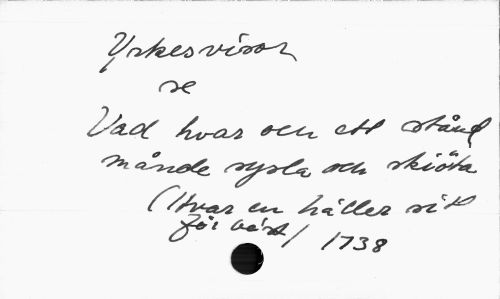 Yrkesvisor
se
Vad hvar och ett stånd
månde sysla och skiöta
(Hvar en håller sit
för bäst) 1738